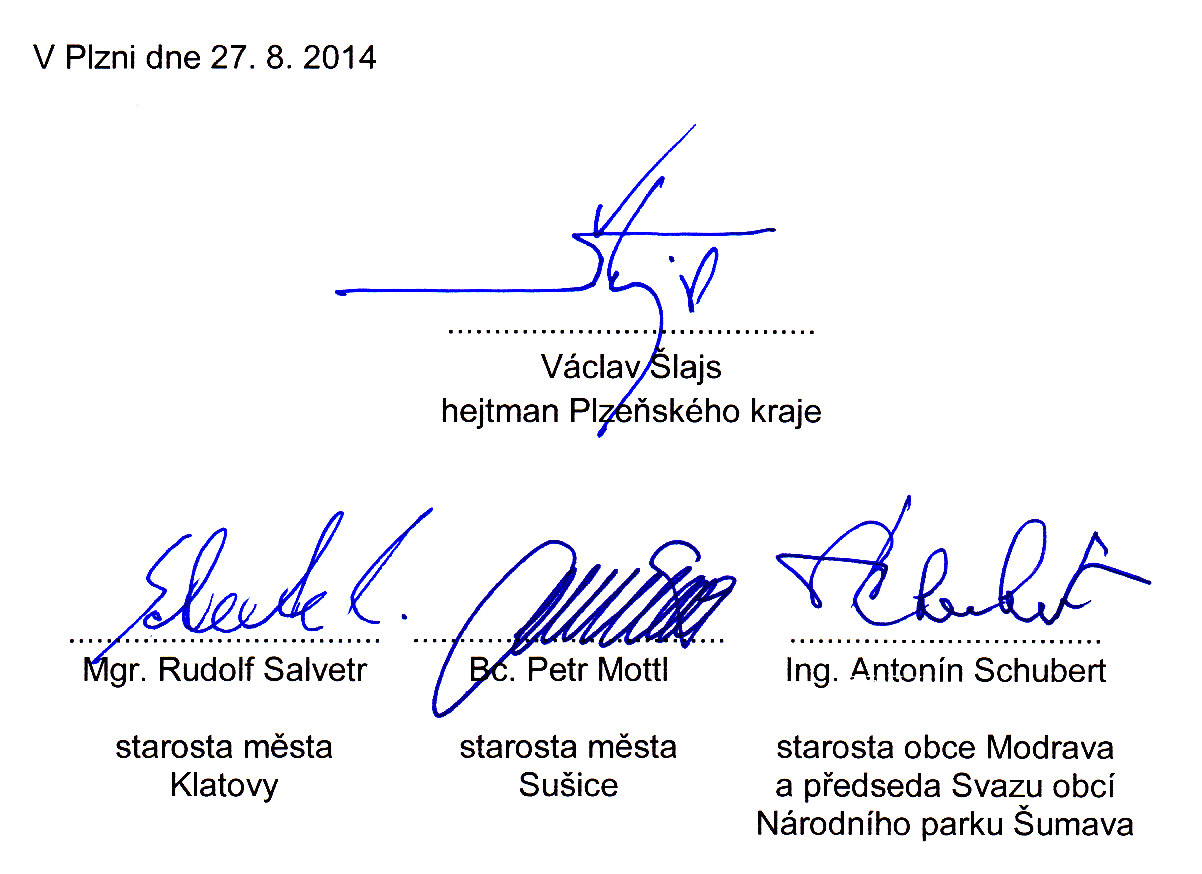 V Plzni dne 27. 8. 2014
Václav Šlajs
hejtman Plzeňského kraje
Mgr. Rudolf Salvetr
Bc. Petr Mottl
Ing. Antonín Schubert
starosta města
Klatovy
starosta města
Sušice
starosta obce Modrava
a předseda Svazu obcí
Národního parku Šumava